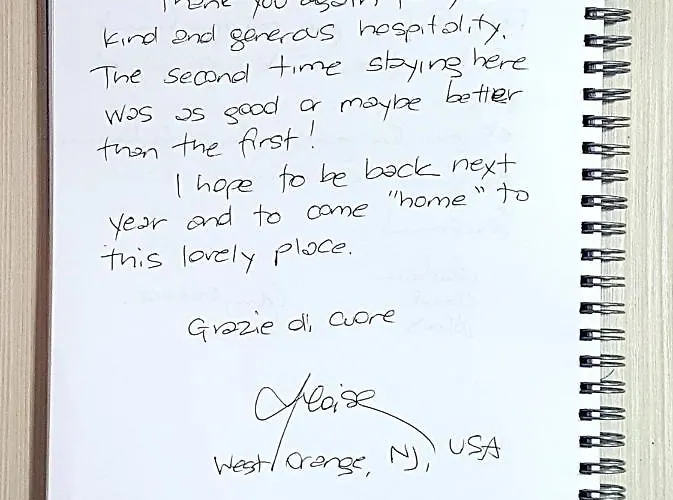 Thank you again
kind and generous hospitality.
The second time staying here
was as good or maybe better
than the first!
I hope to be back next
year and to come "home" to
this lovely place.
Grazie di cuore
West Orange, NJ, USA